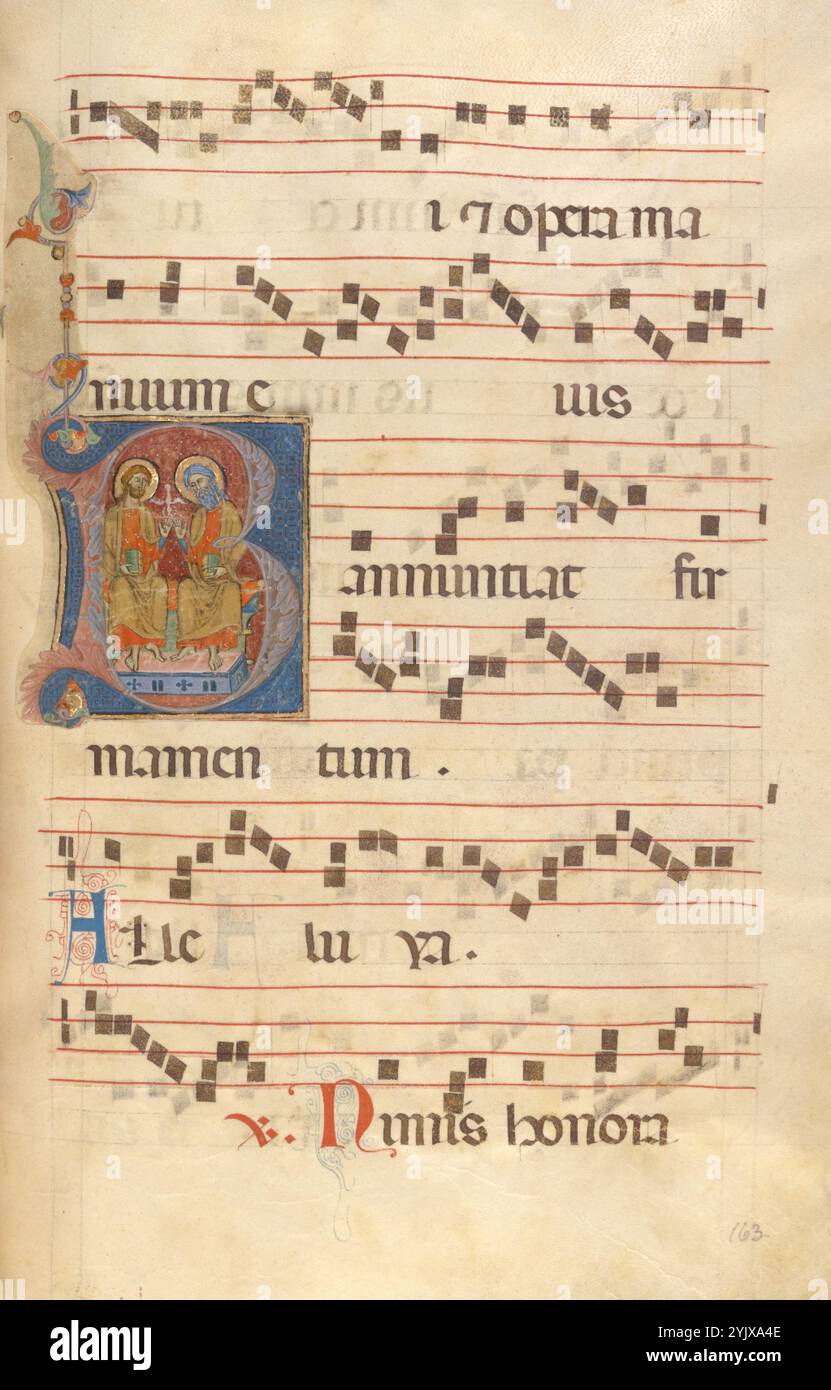 i ⁊ opera ma
nuum e ius
B annuntiat fir
mamen tum .
Alle lu ya .
v. Nimis honora
163
alamy
Image ID: 2YJXA4E
www.alamy.com